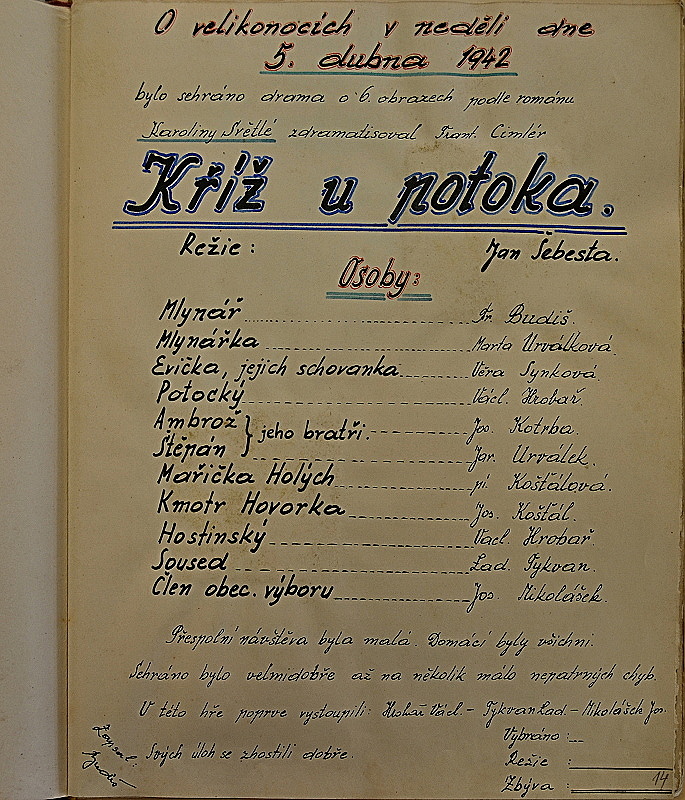 O velikonocích v neděli dne
5. dubna 1942
bylo sehráno drama o 6. obrazech podle románu
Karoliny Světlé zdramatisoval Frant. Cimlér
Kříž u potoka.
Režie : Jan Šebesta.
Osoby:
Mlynář Fr. Budiš.
Mlynářka Marta Urválková.
Evička, jejich schovanka Věra Synková.
Potocký Václ. Hrobař.
Ambrož } jeho bratři. Jos. Kotrba.
Štěpán Jar. Urválek.
Mařička Holých pí. Košťálová.
Kmotr Hovorka Jos. Košťál.
Hostinský Václ. Hrobař.
Soused Lad. Tykvan.
Člen obec. výboru Jos. Mikolášek.
Přespolní návštěva byla malá. Domácí byly všichni.
Sehráno bylo velmi dobře až na několik málo nepatrných chyb.
V této hře poprve vystoupili: Hrobař Václ. - Tykvan Lad. - Mikolášek Jos.
Svých úloh se zhostili dobře.
Zapsal:
Vybráno :
Režie :
Zbývá :
14